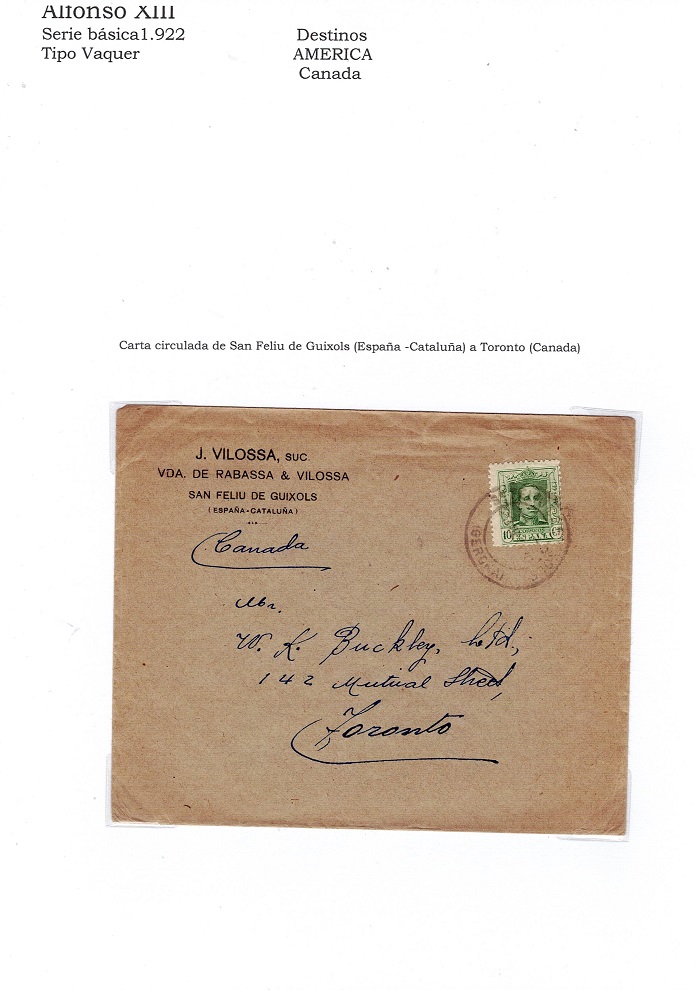 Alfonso XIII
Serie básica1.922
Tipo Vaquer
Destinos
AMERICA
Canada
Carta circulada de San Feliu de Guixols (España -Cataluña) a Toronto (Canada)
J. VILOSSA, SUC.
VDA. DE RABASSA & VILOSSA
SAN FELIU DE GUIXOLS
(ESPAÑA-CATALUÑA)
Canada
Mr.
W. K. Buckley, Ltd.,
142 Mutual Street,
Toronto
10 Cs
ESPAÑA